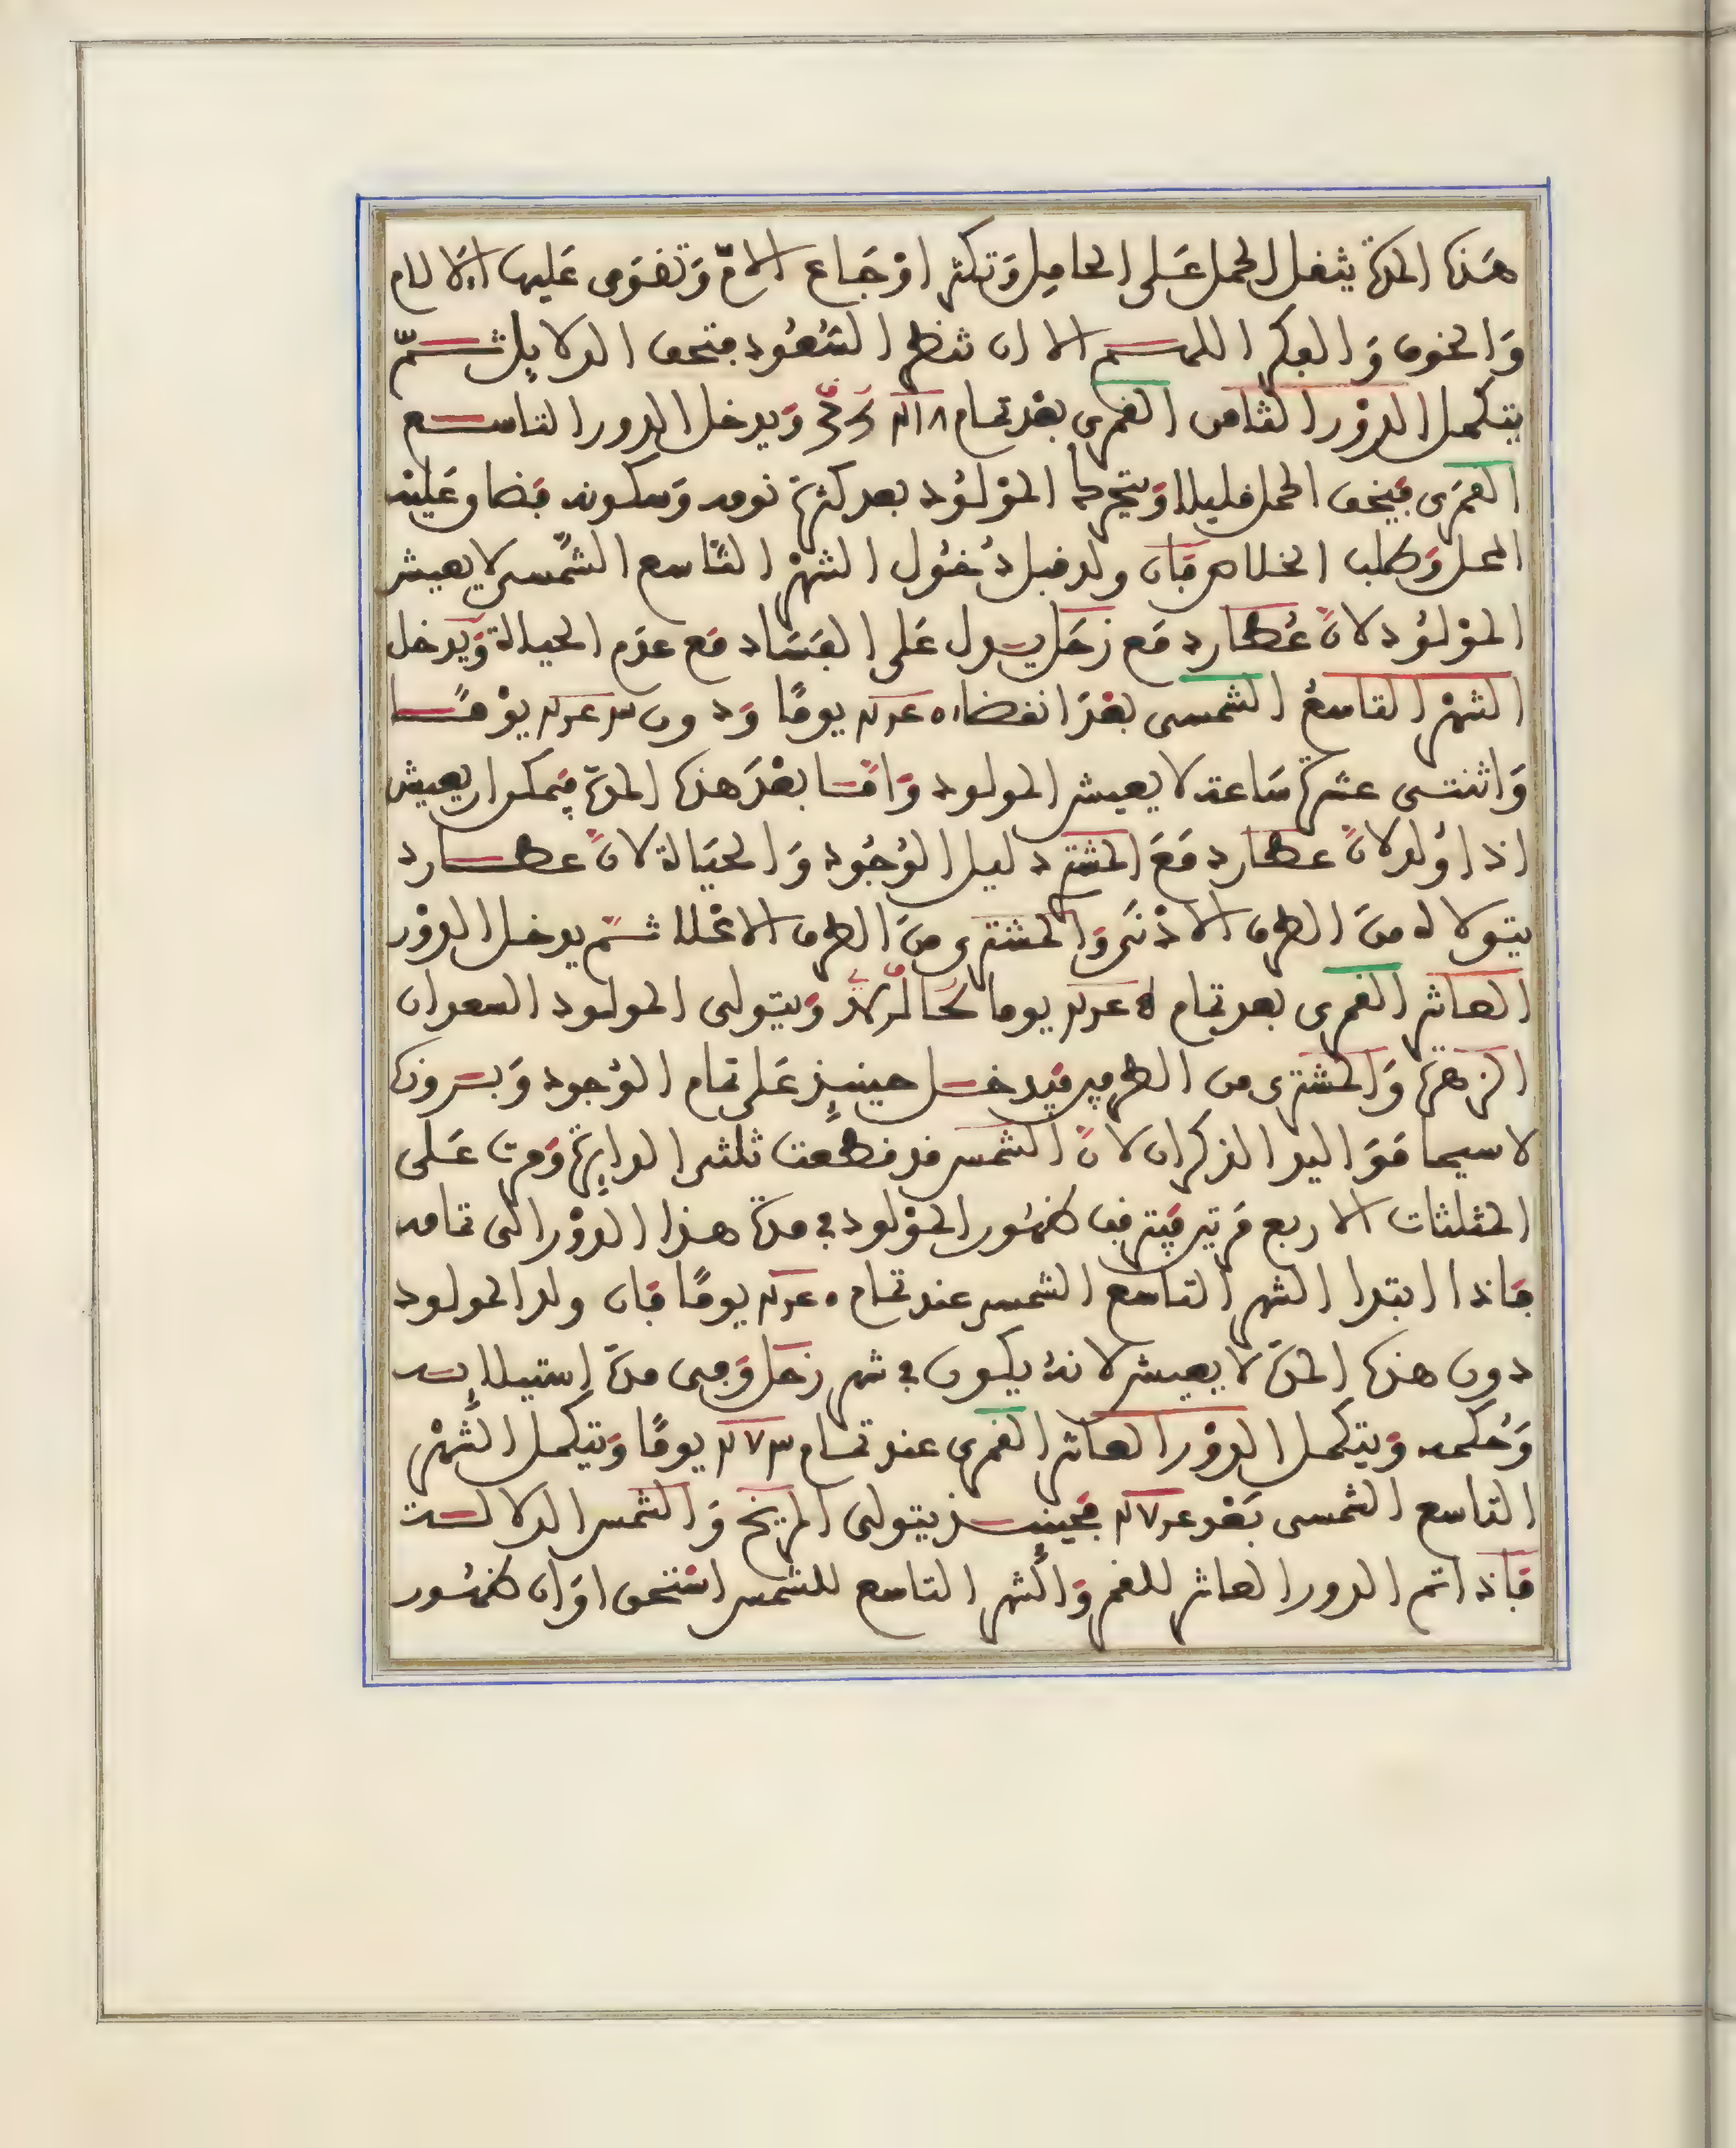 هَذه المدة يثقل الحمل عَلى الحامِل وَتكثر اوْجَاع الامّ وَتقوَى عَليها الالام
وَالخوف وَالفكر اللهم الا ان تنظر السّعُود فتخف الدلايِل ثمّ
يتكمل الدوْر الثامن القمرى بعْد تمام ٢١٨ وَيدخل الدور التاسع
القمَرى فيَخف الحمل قليلا وَيتحرك الموْلوُد بعد كثرة نومه وَسكونه فضاق عَليْه
المحل وَطلب الخلاص فَان ولد قبل دُخُول الشهرْ التّاسع الشّمسى لا يعيش
الموْلوُد لانّ عُطارد مَع زحَل يدل عَلى الفسَاد مَع عدَم الحياة وَيدخل
الشهرْ التاسعُ الشمسى بعْدَ انقضاء يومًا وَدون يوْمًا
وَاثنتى عشرة سَاعة لا يعيش المولود وَامّا بعْدَ هذه المدّة فيمكن ان يعيش
اذا وُلد لانّ عطارد مَعَ المشتر دليل الوُجُود وَالحيَاة لانّ عطارد
يتولاه منَ الطرف الادْنى وَالمشترى منَ الطرف الاعْلا ثمّ يدخل الدوْر
العاشر القمرى بعد تمام يوما وَيتولى المولود السعدان
الزهرَة وَالمشترى من الطرفين فَيدخل حينيذٍ عَلى تمام الوُجود وَبدونه
لا سيما مَوَاليد الذكران لانّ الشمس قد قطعت ثلثى الدايِرة وَمرت عَلى
المثلثات الاربع مَرتين فيَترقب ظهُور الموْلود فى مدّة هذا الدوْر الى تمامه
فاذا ابتدا الشهر التاسع الشمسى عند تمام يومًا فَان ولد المولود
دون هذه المدّة لا يعيش لانهُ يكون فى شهر زحَل وَفى مدّة استيلاإيه
وَحُكمه وَيتكمل الدوْر العاشر القمرى عند تمام ٢٧٣ يومًا وَيتكمل الشّهْر
التاسع الشمسى بَعْد ٢٧٤ فحينيذٍ يتولى المريخ وَالشمس الدلالة
فَاذا تم الدور العاشر للقمر وَالشهر التاسع للشمس استحق اوَان ظهُور